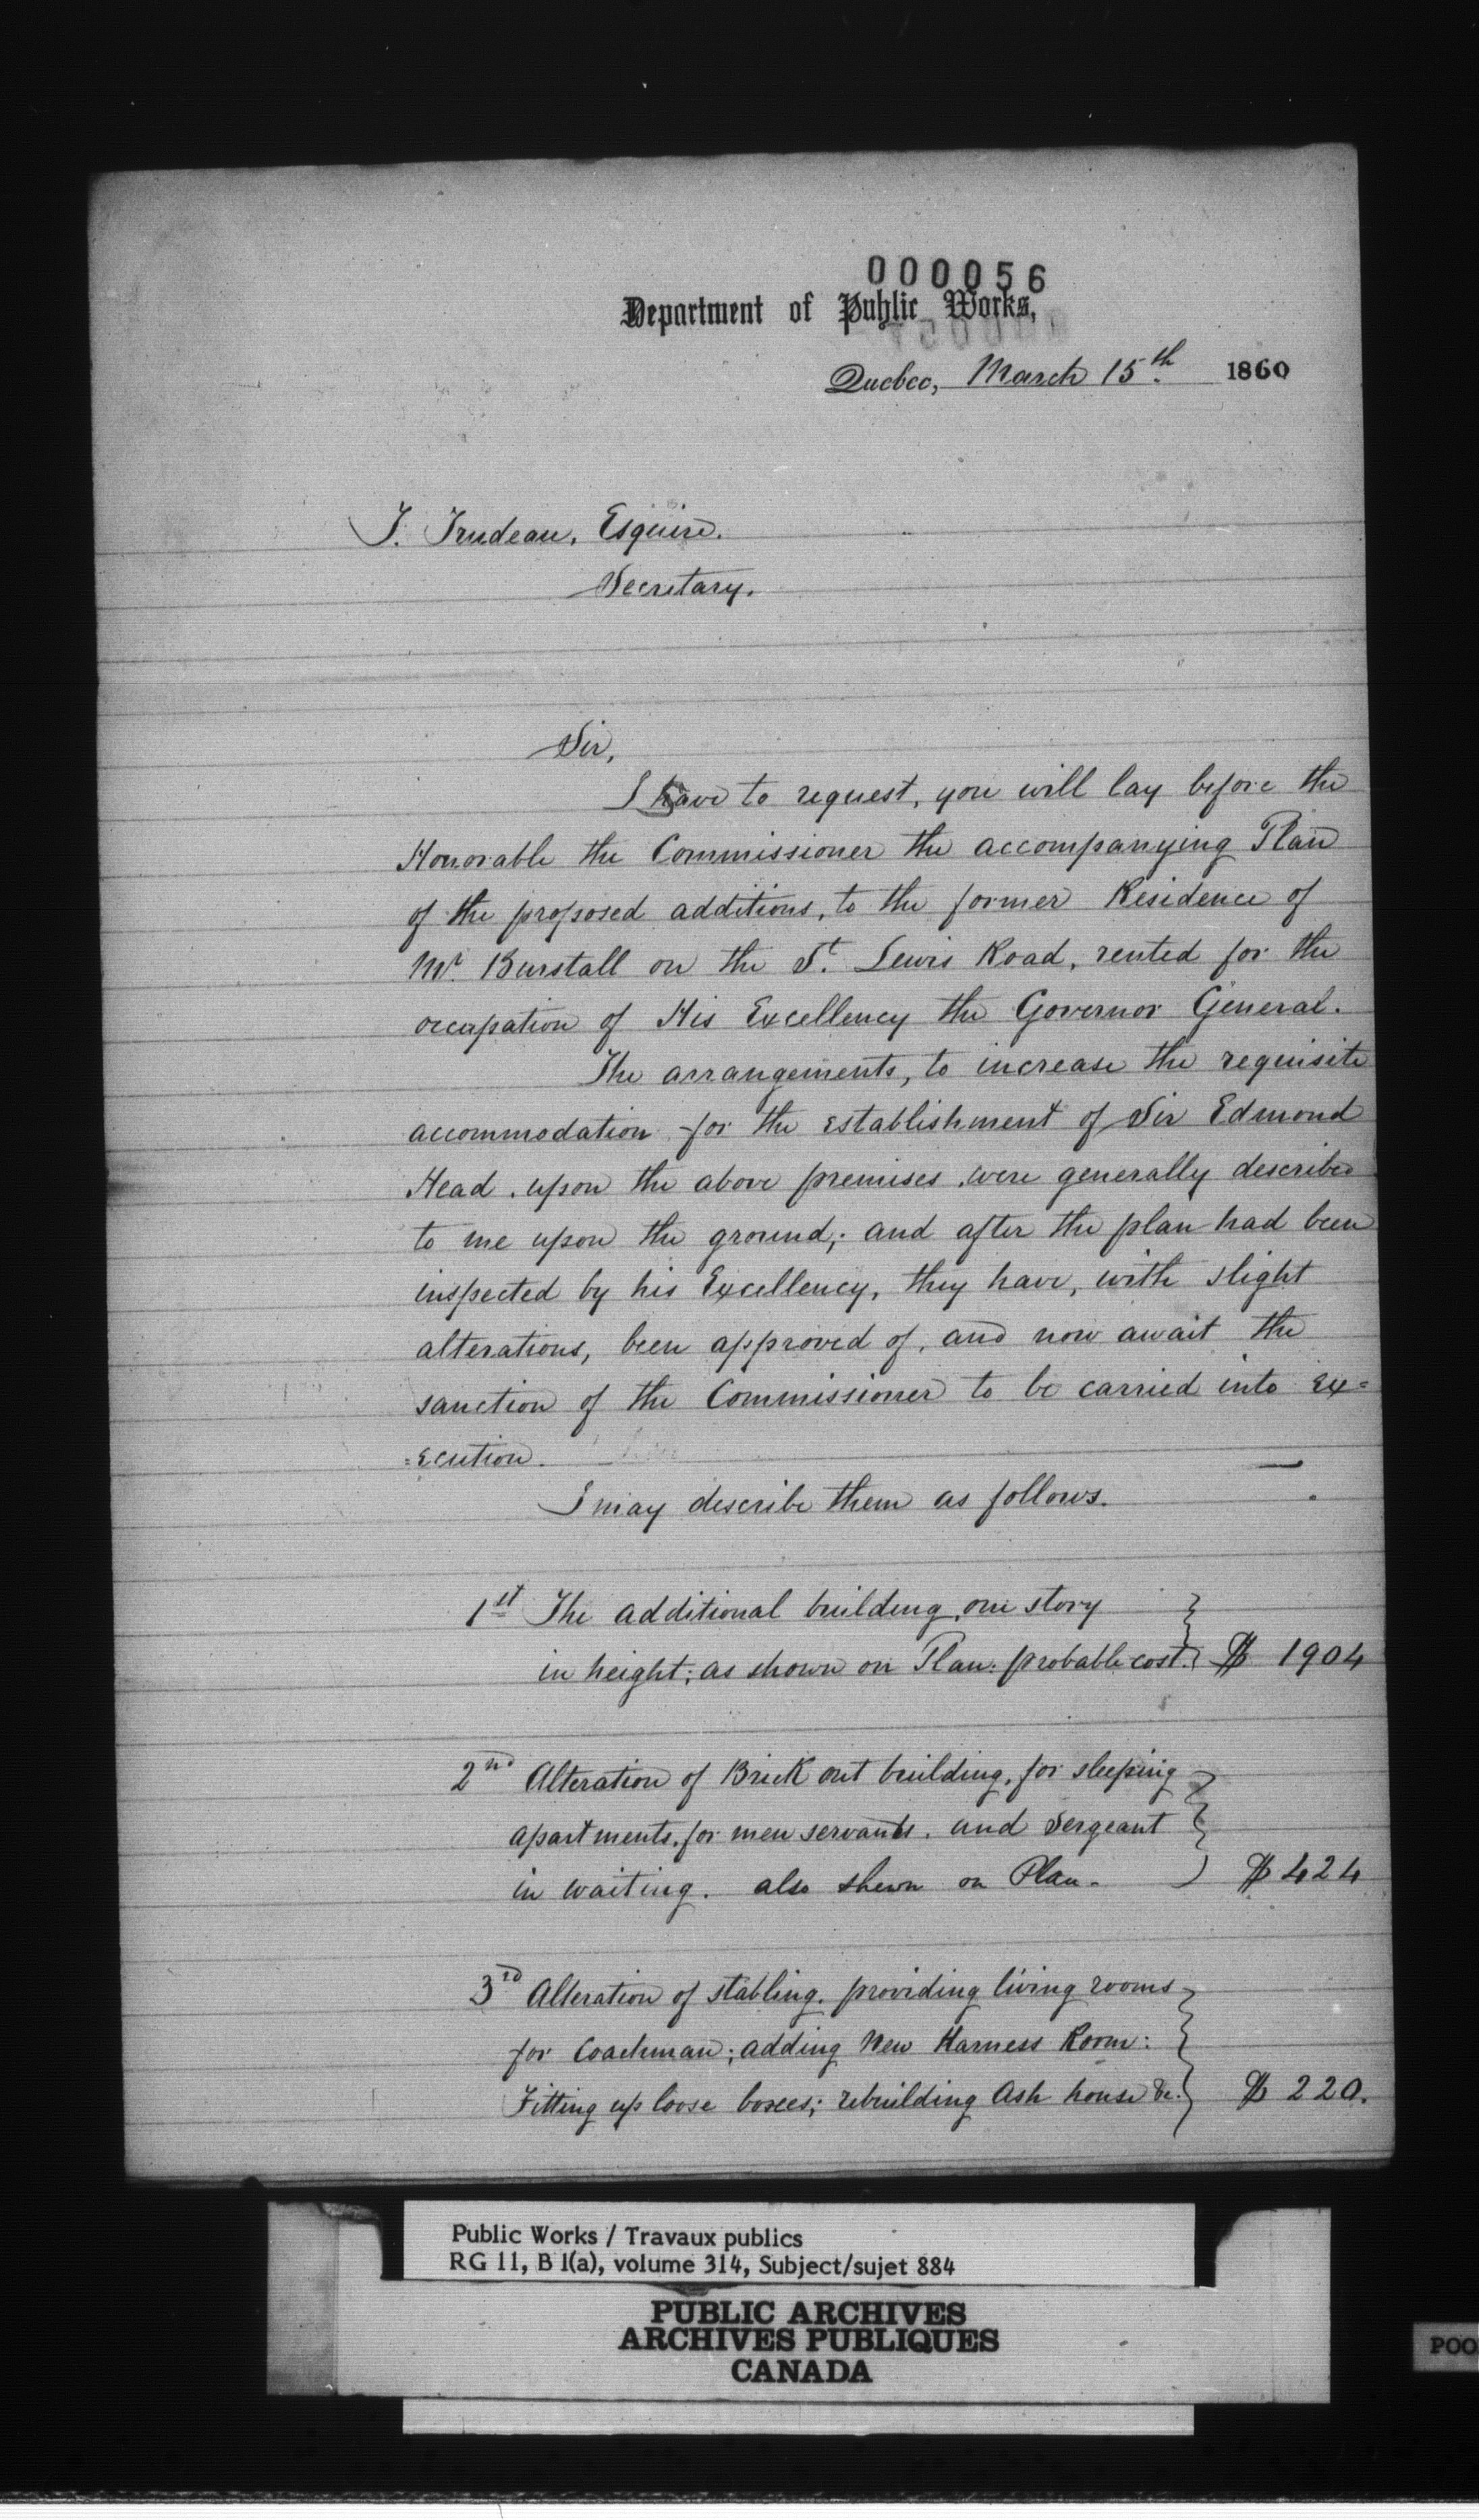 000056
Department of Public Works,
Quebec, March 15th 1860
T. Trudeau, Esquire.
Secretary.
Sir,
I have to request, you will lay before the
Honorable the Commissioner the accompanying Plan
of the proposed additions, to the former Residence of
Mr. Burstall on the St. Lewis Road, rented for the
occupation of His Excellency the Governor General.
The arrangements, to increase the requisite
accommodation for the establishment of Sir Edmond
Head, upon the above premises, were generally described
to me upon the ground; and after the plan had been
inspected by his Excellency, they have, with slight
alterations, been approved of, and now await the
sanction of the Commissioner to be carried into ex=
=ecution.
I may describe them as follows.
1st The additional building, one story
in height; as shown on Plan: probable cost. $ 1904
2nd Alteration of Brick out building, for sleeping
apartments, for men servants, and Sergeant
in waiting. also shewn on Plan. $ 424
3rd Alteration of stabling. providing living rooms
for Coachman; adding New Harness Room:
Fitting up loose boxes; rebuilding Ash house &c. $ 220.
Public Works / Travaux publics
RG 11, B 1(a), volume 314, Subject/sujet 884
PUBLIC ARCHIVES
ARCHIVES PUBLIQUES
CANADA
POO